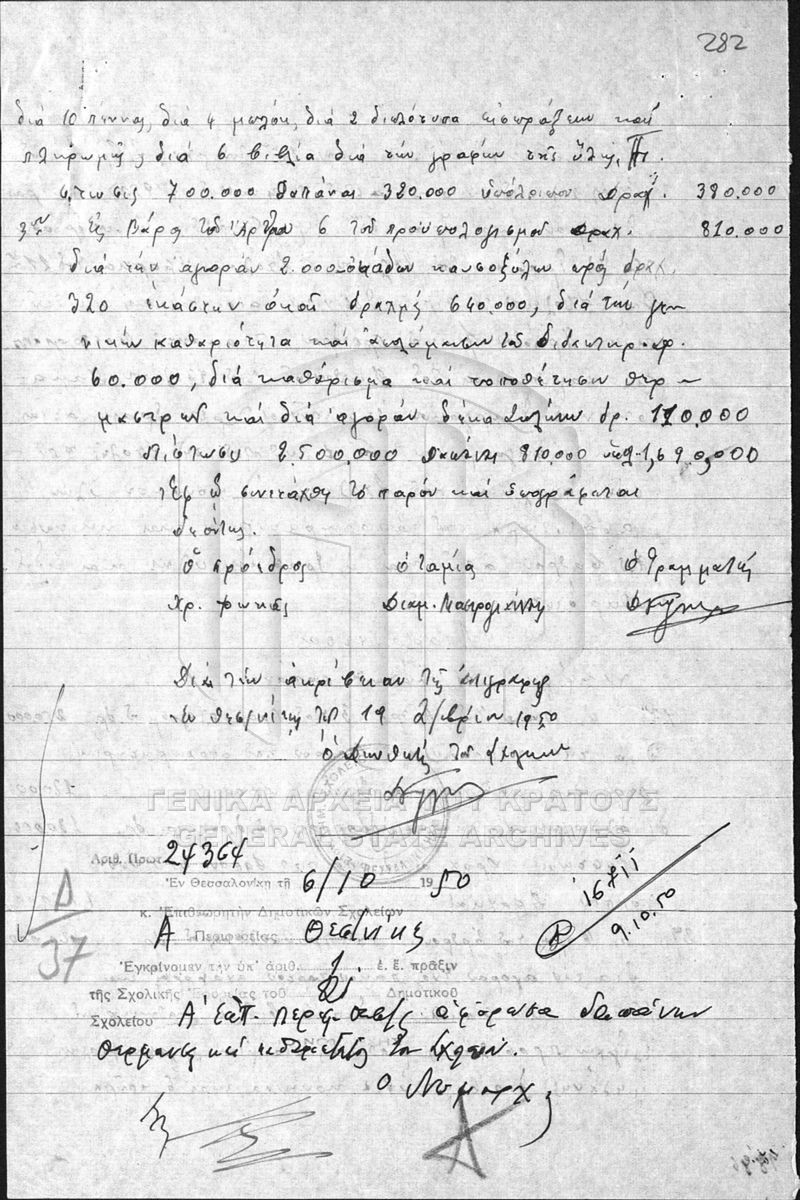 282
διά 10 πέννας, διά 4 μπλόκ, διά 2 διπλότυπα εἰσπράξεων καί
πληρωμῆς, διά 6 βιβλία διά τήν γραφήν τῆς ὕλης Πί-
στωσις 700.000 δαπάναι 320.000 ὑπόλοιπον δραχ. 380.000
3ον Εἰς βάρος τοῦ ἄρθρου 6 τοῦ προϋπολογισμοῦ δραχ. 810.000
διά τήν αγοράν 2.000 οκάδων καυσοξύλων πρός δραχ.
320 ἑκάστην ὀκᾶν δραχμές 640.000, διά τήν γε-
νικήν καθαριότητα καί ἀπολύμανσιν τοῦ διδακτηρ. δρ.
60.000, διά καθάρισμα καί τοποθέτησιν θερ-
μαστρῶν καί διά ἀγοράν δέκα σωλήνων δρ. 110.000
Πίστωσις 2.500.000 δαπάναι 810.000 ὑπόλ. 1,690,000
Ἐφ' ᾧ συνετάχθη τό παρόν καί ὑπογράφεται
δεόντως.
Ὁ πρόεδρος ὁ ταμίας ὁ Γραμματεύς
Χρ. Φωκᾶς
Διά τήν ἀκρίβειαν τῆς ἀντιγραφῆς
Ἐν Θεσ/νίκῃ τῇ 19 7/βρίου 1950
ὁ Διευθυντής τοῦ Σχολείου
ΓΕΝΙΚΑ ΑΡΧΕΙΑ ΤΟΥ ΚΡΑΤΟΥΣ
GENERAL STATE ARCHIVES
Αριθ. Πρωτ. 24364
Ἐν Θεσσαλονίκη τῇ 6/10 1950
κ. Ἐπιθεωρητήν Δημοτικῶν Σχολείων
Α Περιφερείας Θεσ/νίκης
Ἐγκρίνομεν τήν ὑπ' ἀριθ. 1 ἐ. ἔ. πρᾶξιν
τῆς Σχολικῆς Ἐφορείας τοῦ Δημοτικοῦ
Σχολείου
θερμάνσεως καί καθαριότητος τοῦ Σχολείου.
Ο Νομάρχης
9.10.50
Δ
37